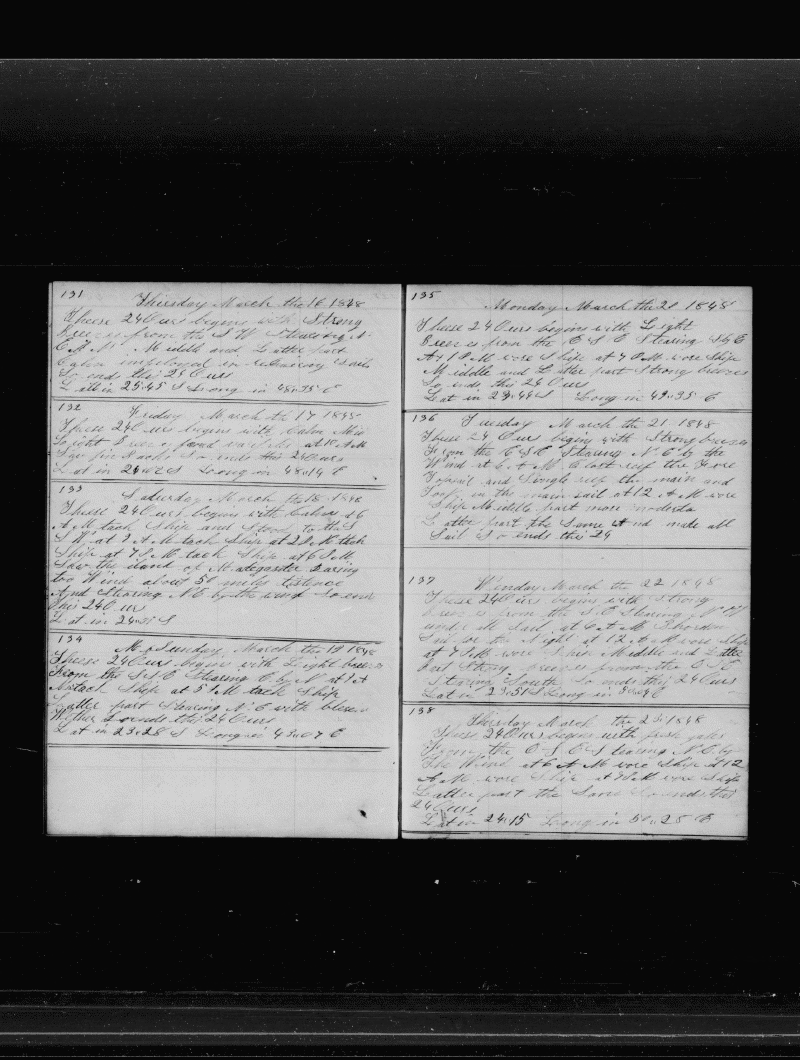 131
Thursday March the 16 1848
These 24 Ours begins with Strong
Breezes from the S W Stearing
Middle and Latter part
Calm imployed in
So ends this 25 Ours
Lat in 25.45 S Long in 48.35 E
132
Friday March the 17 1848
These 24 Ours begins with Calm
Light Breezes at 10 A M
So ends this 24 Ours
Lat in 24 S Long in 48.14 E
133
Saturday March the 18 1848
These 24 Ours begins with Calm at 6
A M tack Ship and Stood to the S
S W at 9 A M tack Ship at 2 P M tack
Ship at 7 P M tack Ship at 6 P M
Saw the iland of Baring
to Wind about 50 miles distence
And Stearing N E by the wind So ends
this 24 Ours
Lat in 24 S
134
Sunday March the 19 1848
These 24 Ours begins with Light breezes
From the S S E Stearing E by N at 9 A
M tack Ship at 5 P M tack Ship
Latter part Stearing N E with
So ends this 24 Ours
Lat in 23.28 S Long in 43.07 E
135
Monday March the 20 1848
These 24 Ours begins with Light
Breezes from the E S E Stearing S by E
At 1 P M wore Ship at 7 P M wore Ship
Middle and Latter part Strong breezes
So ends this 24 Ours
Lat in 24.44 S Long in 49.35 E
136
Tuesday March the 21 1848
These 24 Ours begins with Strong breezes
From the E S E Stearing N E by the
Wind at 6 A M Clost reef the Fore
Topsail and Single reef the main and
in the main sail at 12 A M wore
Ship Middle part more moderate
Latter part the Same And made all
Sail So ends this 24
137
Wensday March the 22 1848
These 24 Ours begins with Strong
Breezes from the S E Stearing N
under Sail at 6 A M Shorten
Sail for the Night at 12 A M wore Ship
at 7 P M wore Ship Middle and Latter
Part Strong breezes from the E S E
Stearing South So ends this 24 Ours
Lat in 23.51 S Long in 50 E
138
Thursday March the 23 1848
These 24 Ours begins with fresh gales
From the E S E Stearing N E by
The Wind at 6 A M wore Ship at 12
A M wore Ship at 7 P M wore Ship
Latter part the Same So ends this
24 Ours
Lat in 24.15 Long in 50.28 E